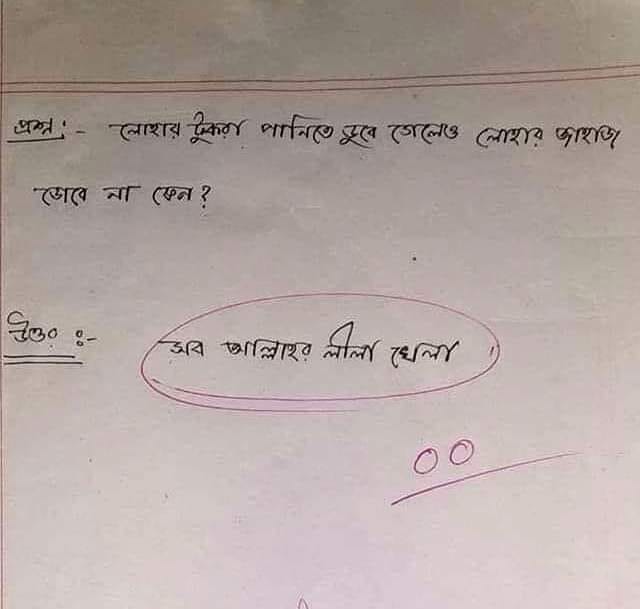 প্রশ্ন:- লোহার টুকরা পানিতে ডুবে গেলেও লোহার জাহাজ
ডোবে না কেন?
উত্তর ঃ- সব আল্লাহর লীলা খেলা
00